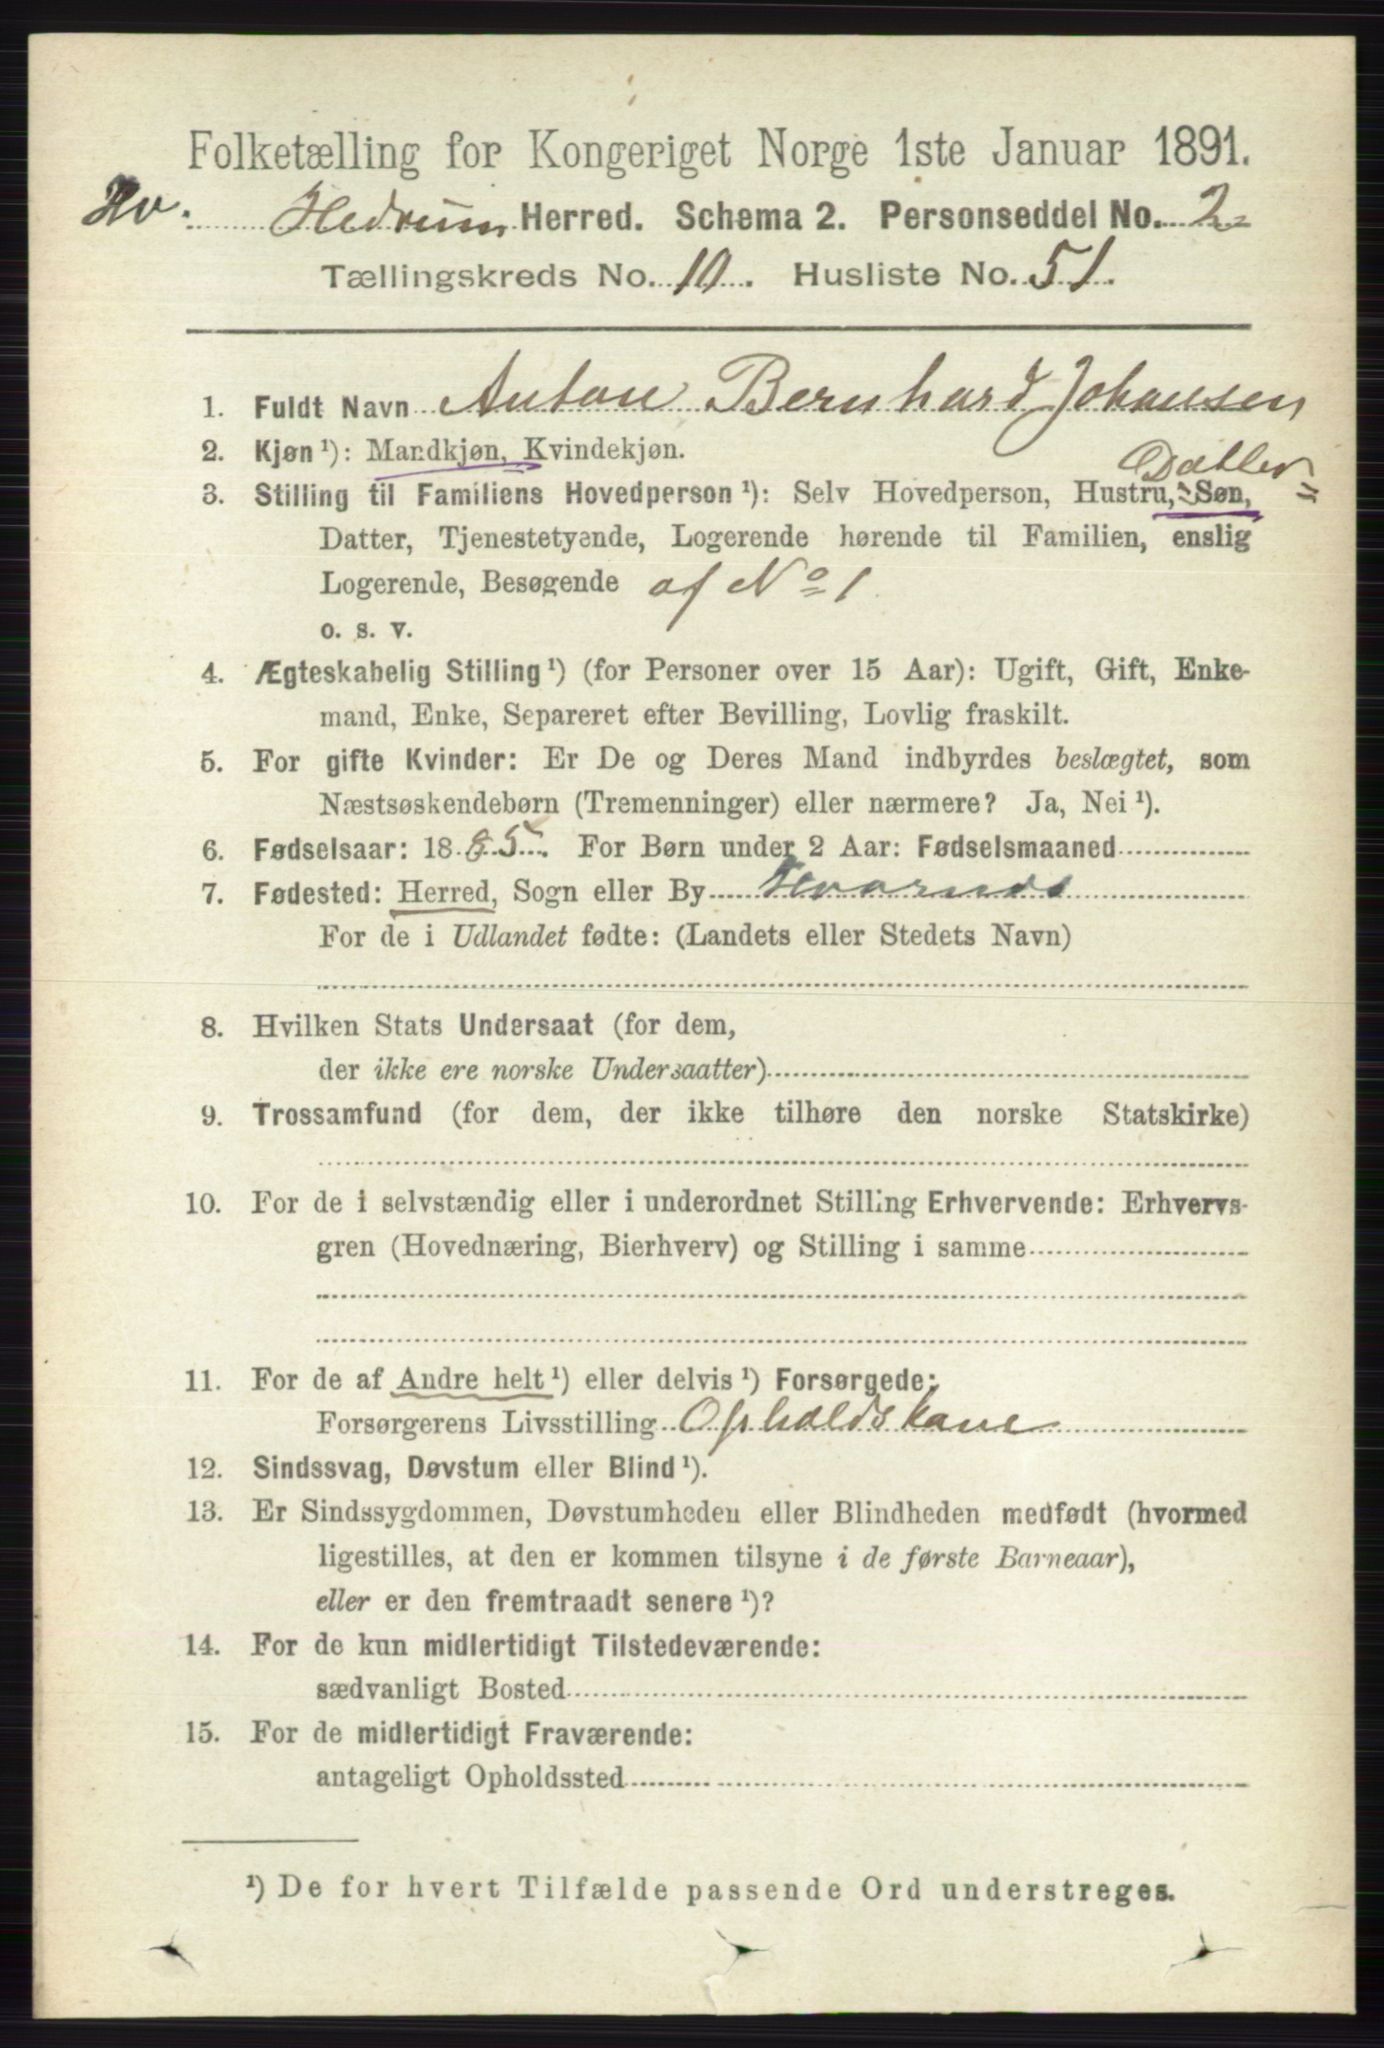 Folketælling for Kongeriget Norge 1ste Januar 1891.
Hv. Hedrum Herred. Schema 2. Personseddel No. 2
Tællingskreds No. 10. Husliste No. 51.
1. Fuldt Navn Anton Bernhard Johansen
2. Kjøn ¹): Mandkjøn, Kvindekjøn.
Datter =
3. Stilling til Familiens Hovedperson ¹): Selv Hovedperson, Hustru, Søn,
Datter, Tjenestetyende, Logerende hørende til Familien, enslig
Logerende, Besøgende af No 1
o. s. v.
4. Ægteskabelig Stilling ¹) (for Personer over 15 Aar): Ugift, Gift, Enke-
mand, Enke, Separeret efter Bevilling, Lovlig fraskilt.
5. For gifte Kvinder: Er De og Deres Mand indbyrdes beslægtet, som
Næstsøskendebørn (Tremenninger) eller nærmere? Ja, Nei ¹).
6. Fødselsaar: 1885. For Børn under 2 Aar: Fødselsmaaned
7. Fødested: Herred, Sogn eller By Hvarnes
For de i Udlandet fødte: (Landets eller Stedets Navn)
8. Hvilken Stats Undersaat (for dem,
der ikke ere norske Undersaatter)
9. Trossamfund (for dem, der ikke tilhøre den norske Statskirke)
10. For de i selvstændig eller i underordnet Stilling Erhvervende: Erhvervs-
gren (Hovednæring, Bierhverv) og Stilling i samme
11. For de af Andre helt ¹) eller delvis ¹) Forsørgede:
Forsørgerens Livsstilling Opholdskone
12. Sindssvag, Døvstum eller Blind ¹).
13. Er Sindssygdommen, Døvstumheden eller Blindheden medfødt (hvormed
ligestilles, at den er kommen tilsyne i de første Barneaar),
eller er den fremtraadt senere ¹)?
14. For de kun midlertidigt Tilstedeværende:
sædvanligt Bosted
15. For de midlertidigt Fraværende:
antageligt Opholdssted
¹) De for hvert Tilfælde passende Ord understreges.